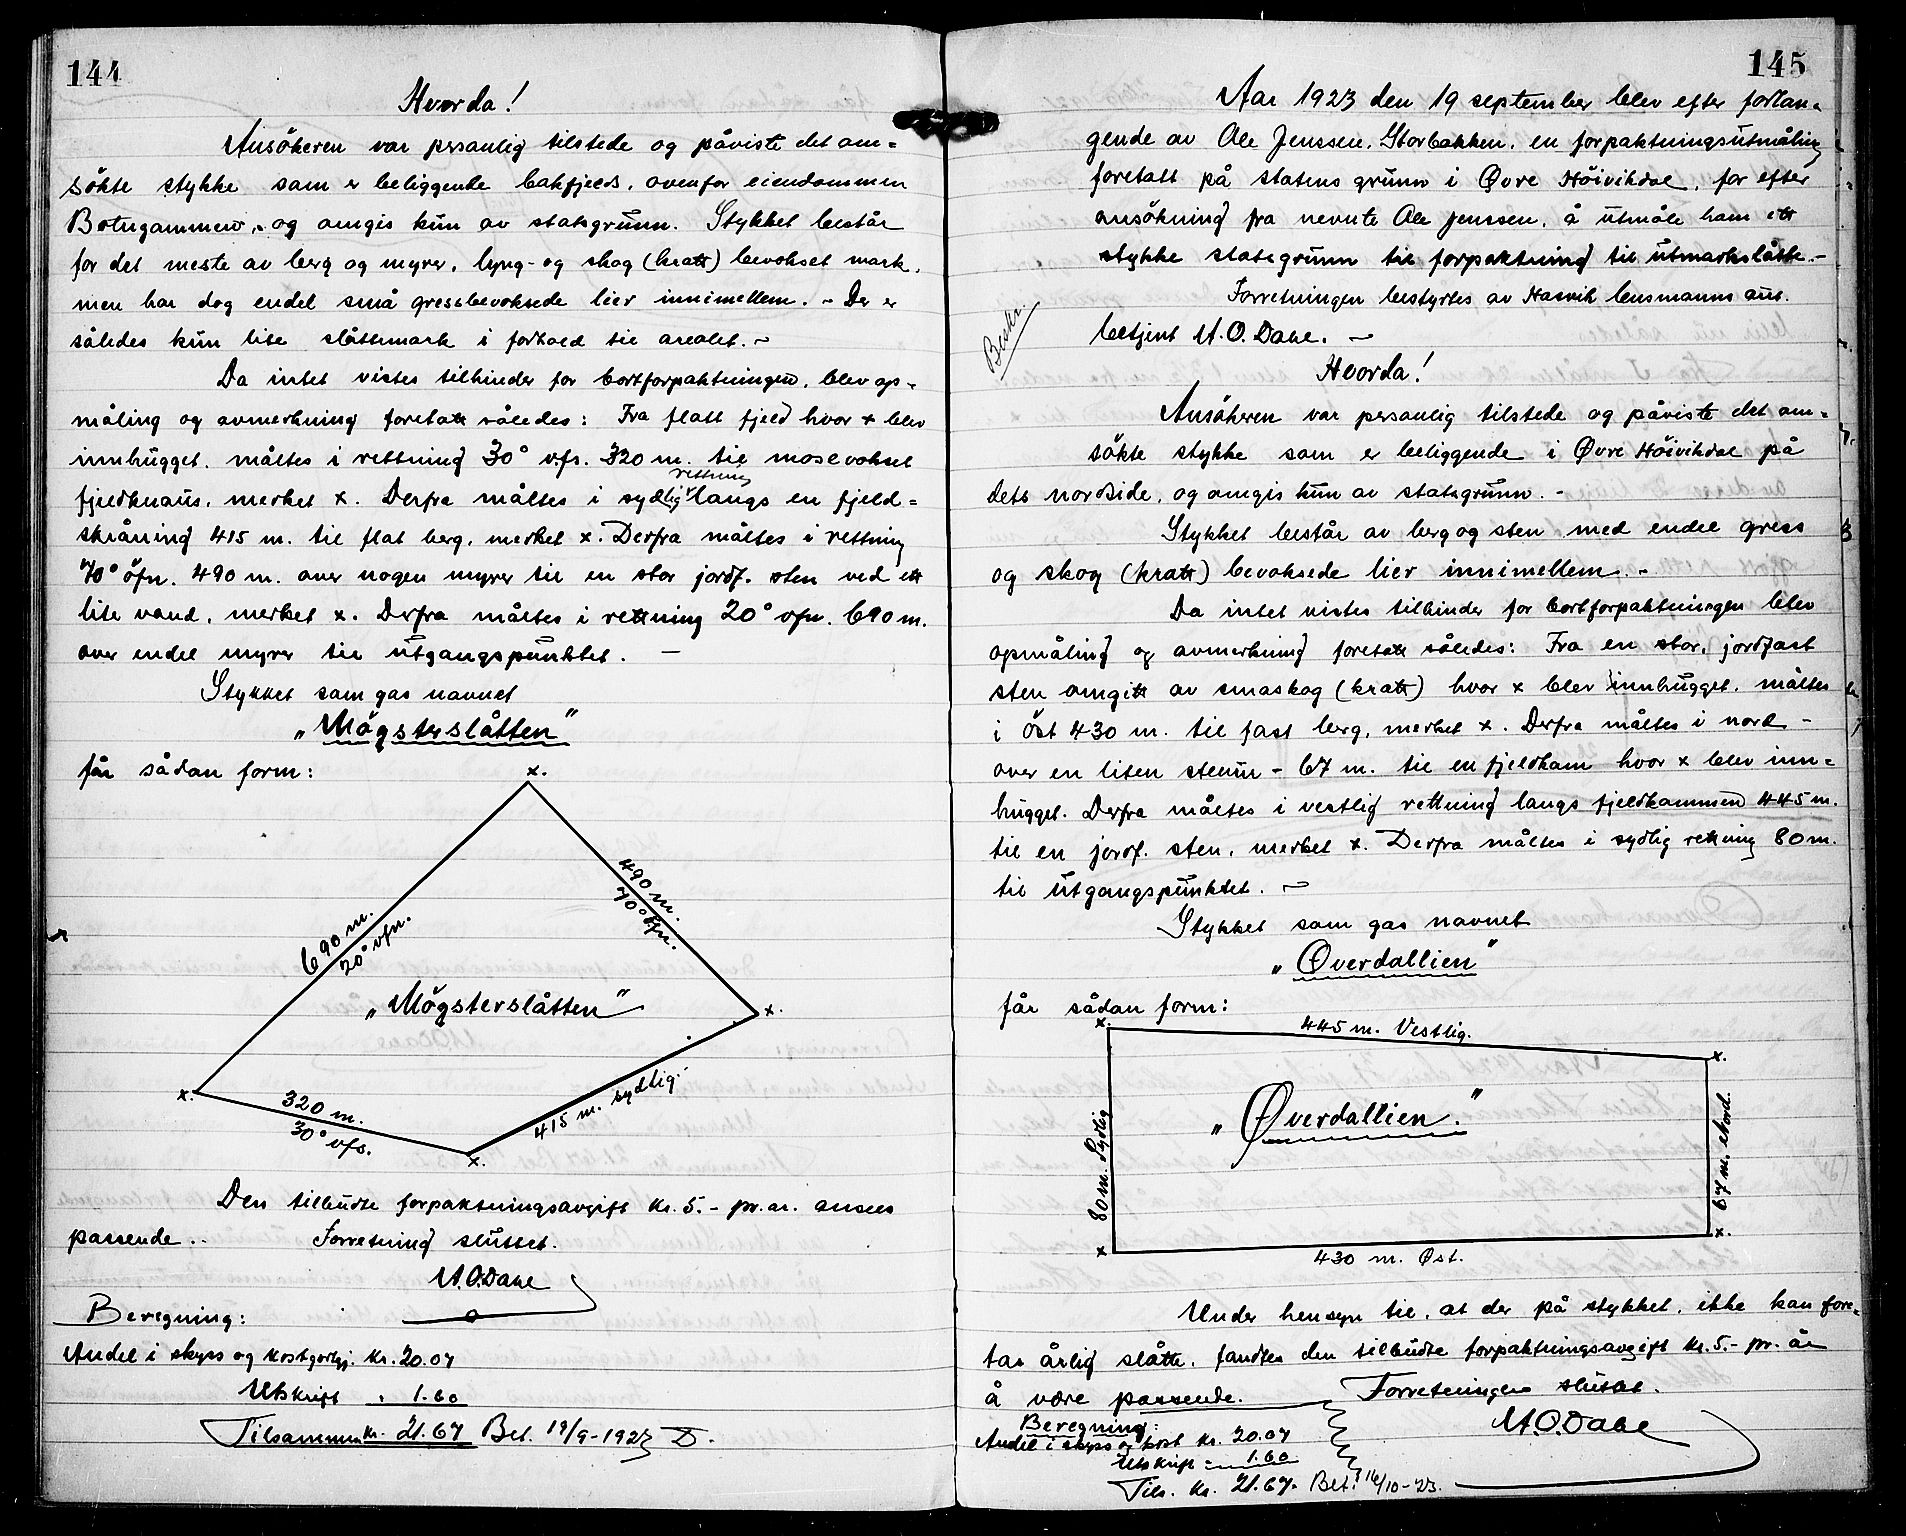 144
Hvorda!
Ansökeren var personlig tilstede og påviste det om=
sökte stykke som er beliggende bakfjelds, ovenfor eiendommen
Botngammen, og omgis kun av statsgrunn. Stykket består
for det meste av berg og myrer, lyng- og skog (kratt) bevokset mark,
men har dog endel små gressbevoksede lier innimellem. - Der er
således kun lite slåttemark i forhold til arealet. -
Da intet vistes tilhinder for bortforpaktningen, blev op=
måling og avmerkning foretatt således: Fra flatt fjeld hvor x blev
innhugget, måltes i rettning 30° v.f.s. 320 m. til mosevokset
fjeldknaus, merket x. Derfra måltes i sydlig rettning langs en fjeld=
skråning 415 m. til flat berg, merket x. Derfra måltes i rettning
70° öfn. 490 m. over nogen myrer til en stor jordf. sten ved ett
lite vand, merket x. Derfra måltes i rettning 20° vfn. 690 m.
over endel myrer til utgangspunktet. -
Stykket som gas navnet
"Mögsterslåtten"
får sådan form:
x.
490 m.
70° öfn.
690 m.
20° vfn.
"Mögsterslåtten"
x.
x.
320 m.
30° vfs.
415 m. sydlig.
x.
Den tilbudte forpaktningsavgift kr. 5.- pr. år. ansees
passende.. Forretning sluttet.
M.O.Dahl
Beregning:
Andel i skyss og kostgodtgj. kr. 20.07
Utskrift " 1.60
Tilsammen kr. 21.67 Bet. 19/9-1923 D.
145
Aar 1923 den 19 september blev efter forlan=
gende av Ole Jenssen, Storbakken, en forpaktningsutmåling
foretatt på statens grunn i Øvre Höivikdal, for efter
ansökning fra nevnte Ole Jenssen, å utmåle ham ett
stykke statsgrunn til forpaktning til utmarkslåtte. -
Forretningen bestyrtes av Hasvik lensmanns aut.
betjent M.O. Dahl. -
Beskr.
Hvorda!
Ansökeren var personlig tilstede og påviste det om=
sökte stykke som er beliggende i Øvre Höivikdal på
dets nordside, og omgis kun av statsgrunn. -
Stykket består av berg og sten med endel gress
og skog (kratt) bevoksede lier innimellem. -
Da intet vistes tilhinder for bortforpaktningen blev
opmåling og avmerkning foretatt således: Fra en stor, jordfast
sten omgitt av småskog (kratt) hvor x blev innhugget, måltes
i öst 430 m. til fast berg, merket x. Derfra måltes i nord -
over en liten stenur - 67 m. til en fjeldkam hvor x blev inn=
hugget. Derfra måltes i vestlig rettning langs fjeldkammen 445 m.
til en jordf. sten, merket x. Derfra måltes i sydlig rettning 80 m.
til utgangspunktet. -
Stykket som gas navnet
"Øverdallien"
får sådan form:
x.
445 m. Vestlig.
x.
80 m. Sydlig
"Øverdallien."
67 m. Nord.
x
430 m. Øst.
x.
Under hensyn til, at der på stykket, ikke kan fore=
tas årlig slåtte, fandtes den tilbudte forpaktningsavgift kr. 5.- pr. år
å være passende. Forretningen sluttet.
M.O.Dahl
Beregning:
Andel i skyss og kost kr. 20.07
Utskrift " 1.60
Tils. kr. 21.67. Bet. 16/10-23.